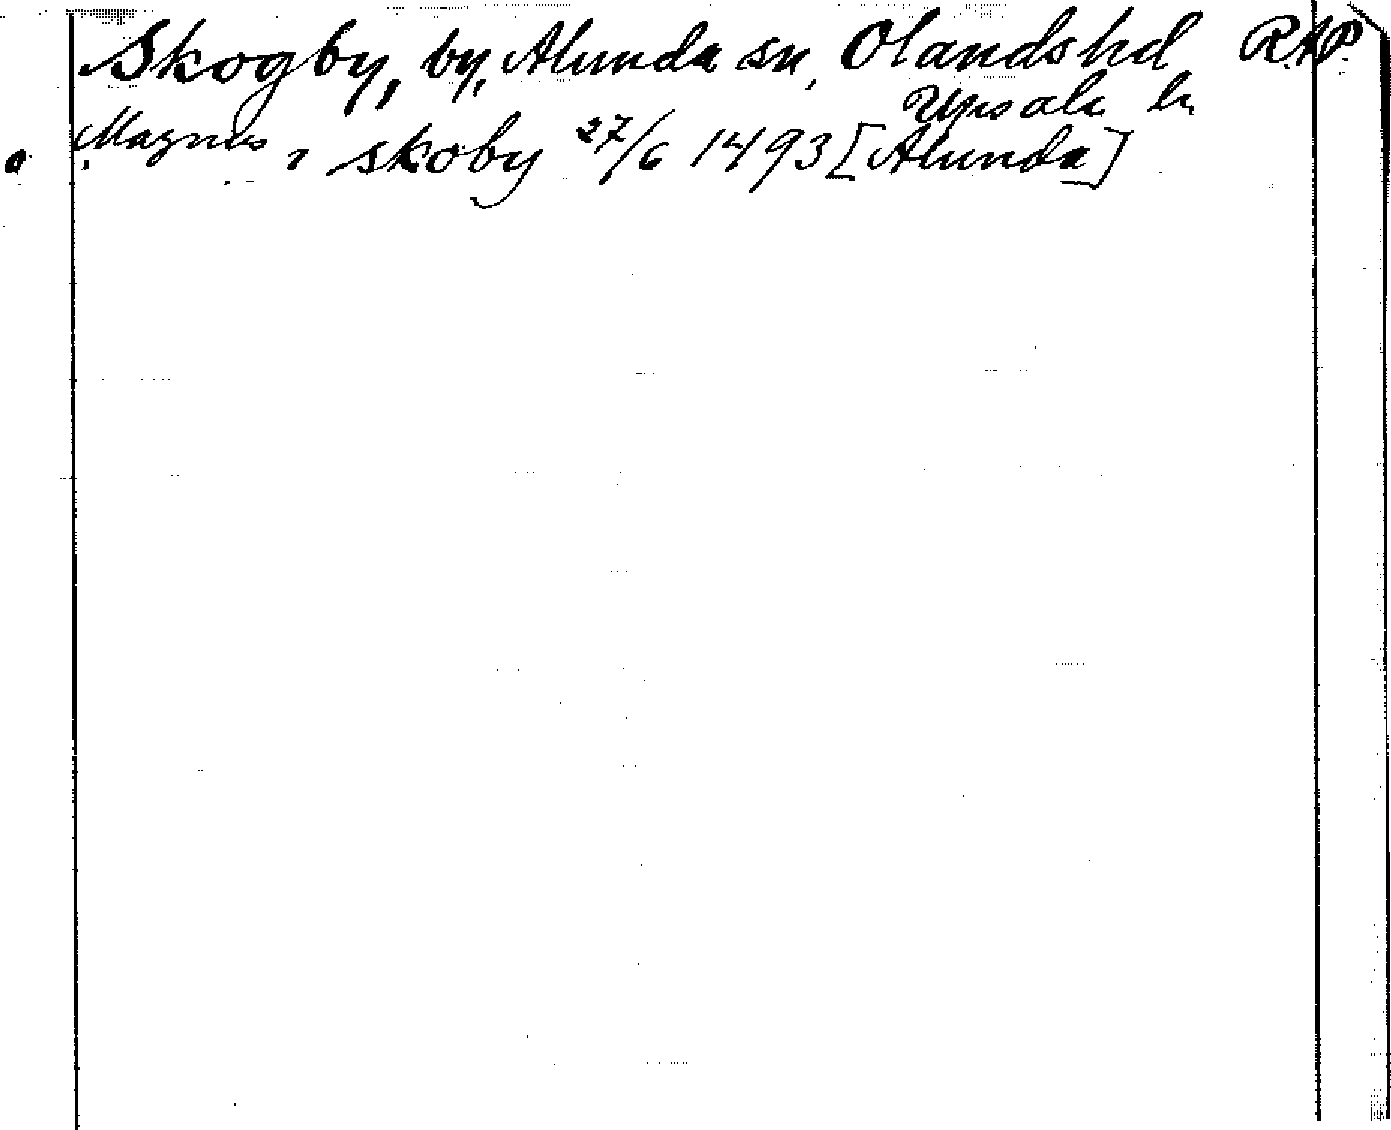 Skogby, by, Alunda sn, Olandshd RAP
Upsala ln
Magnus i skoby 27/6 1493 [Alunda]